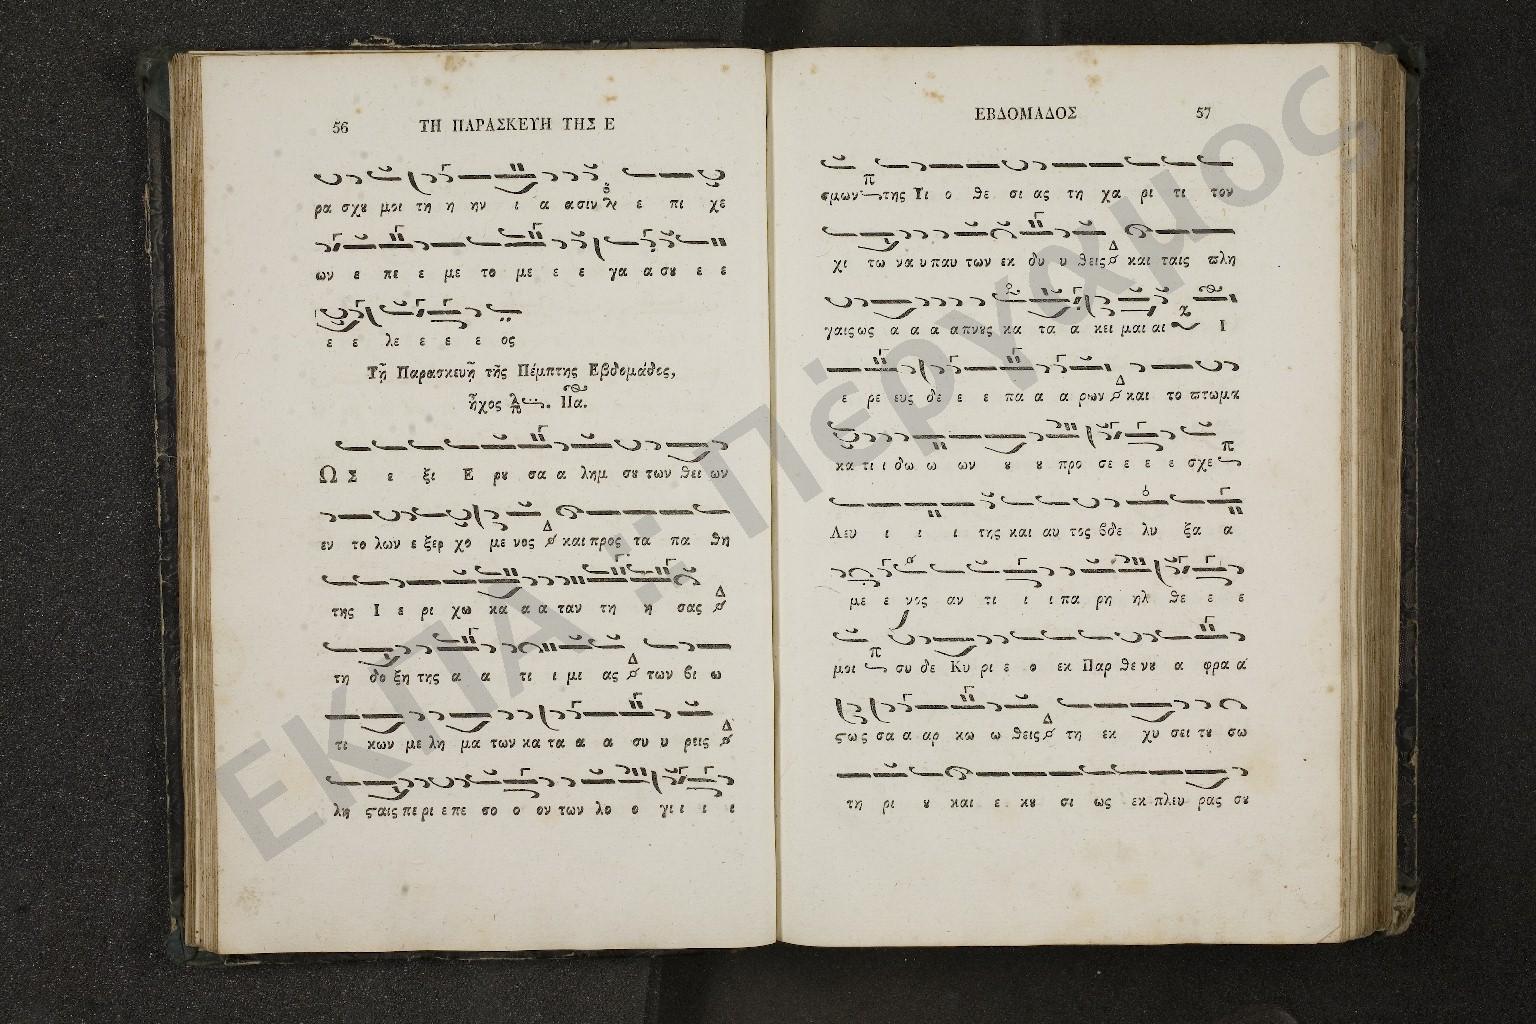 56 ΤΗ ΠΑΡΑΣΚΕΥΗ ΤΗΣ Ε
ρα σχȣ μοι τη η ην ι α ασιν ε πι χε
ων ε πε ε με το με ε ε γα α σȣ ε ε
ε ε λε ε ε ε ος
Τῇ Παρασκευῇ τῆς Πέμπτης Εβδομάδος,
ἦχος Πα.
Ω Σ ε ξι Ε ρȣ σα α λημ σȣ των θει ων
εν το λων ε ξερ χο με νος Δ και προς τα πα θη
της Ι ε ρι χω κα α α ταν τη η σας Δ
τη δο ξη της α α τι ι μι ας Δ των βι ω
τι κων με λη μα των κα τα α α συ υ ρεις Δ
λη ϛαις πε ρι ε πε σο ο ον των λο ο γι ι ι ι
ΕΒΔΟΜΑΔΟΣ 57
σμων π της Υι ο θε σι ας τη χα ρι τι τον
χι τω να υ παυ των εκ δυ υ θεις Δ και ταις πλη
γαις ως α α α α πνȣς κα τα α κει μαι αι Ι
ε ρε ευς δε ε ε πα α α ρων Δ και το πτωμα
κα τι ι δω ω ων ȣ ȣ προ σε ε ε ε σχε π
Λευ ι ι ι της και αυ τος βδε λυ ξα α
με ε νος αν τι ι ι πα ρη ηλ θε ε ε
μοι π συ δε Κυ ρι ε ο εκ Παρ θε νȣ α φρα α
ϛως σα α αρ κω ω θεις Δ τη εκ χυ σει τȣ σω
τη ρι ȣ και ε κȣ σι ως εκ πλευ ρας σȣ
ΕΚΠΑ :: Πέργαμος